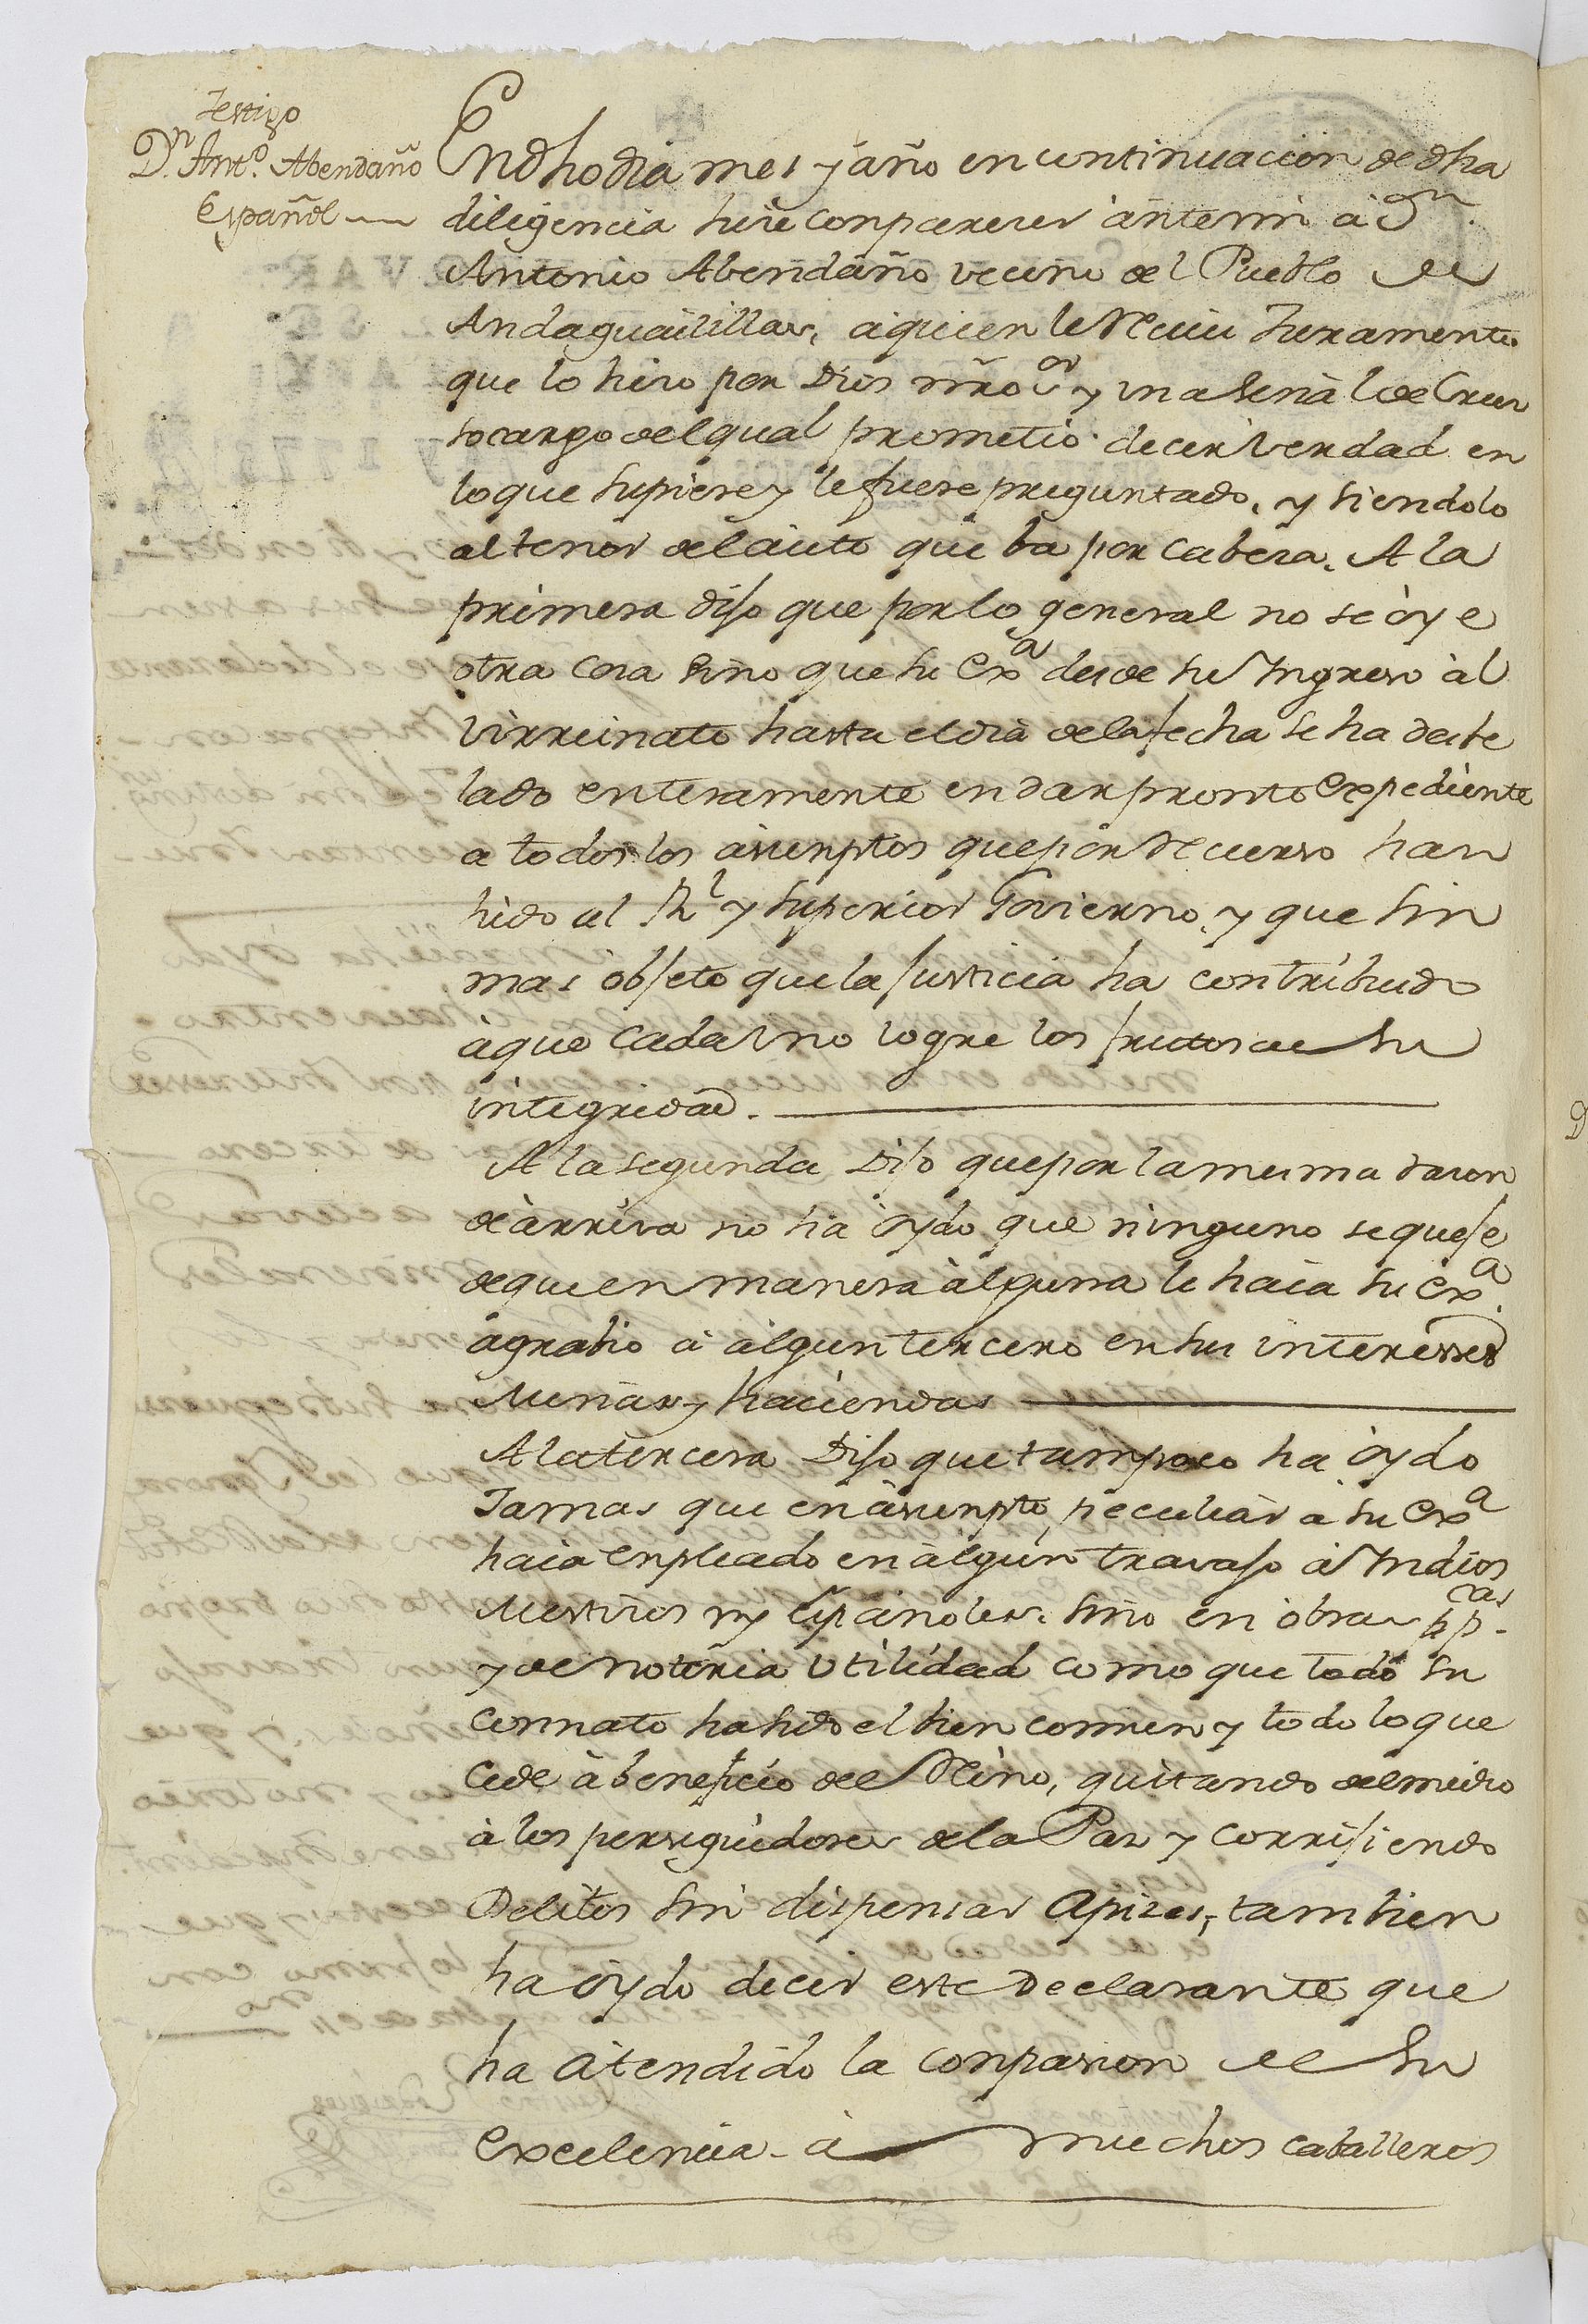 Testigo
Dn. Anto. Abendaño
Español
En dho dia mes y año en continuacion de dha
diligencia hise conparecer ante mi a Dn.
Antonio Abendaño vecino del Pueblo de
Andaguailillas, a quien le Reciui Juramento
que lo hizo por Dios nro sor y una señal de Cruz
so cargo del qual prometio decir verdad en
lo que supiere y le fuere preguntado, y siendolo
al tenor del auto que ba por cabeza. A la
primera dijo que por lo general no se oye
otra cosa sino que su Exa desde su Ingreso al
Virreinato hasta el dia de la fecha se ha desbe
lado enteramente en dar pronto expediente
a todos los asumptos que por Recurso han
hido al Rl y superior Govierno, y que sin
mas objeto que la Justicia ha contribuido
a que cada Uno logre los frutos de su
integridad.
A la segunda Dijo que por la mesma rason
de arriva no ha oydo que ninguno se queje
de que en manera alguna le haia su Exa.
agrabio a algun tercero en sus interesses
Minas y haciendas
A la tercera Dijo que tampoco ha oydo
Jamas que en asumpto peculiar a su Exa
haia enpleado en algun travajo a Indios
Mestisos ny Españoles, sino en obras ppcas
y de notoria Utilidad como que todo su
connato ha sido el bien comun y todo lo que
cede a beneficio del Reino, quitando del medio
a los perseguidores de la Paz y corrijiendo
Delitos sin dispensar apises, tambien
ha oydo decir este Declarante que
ha atendido la conpasion de su
Excelencia a muchos caballeros
D